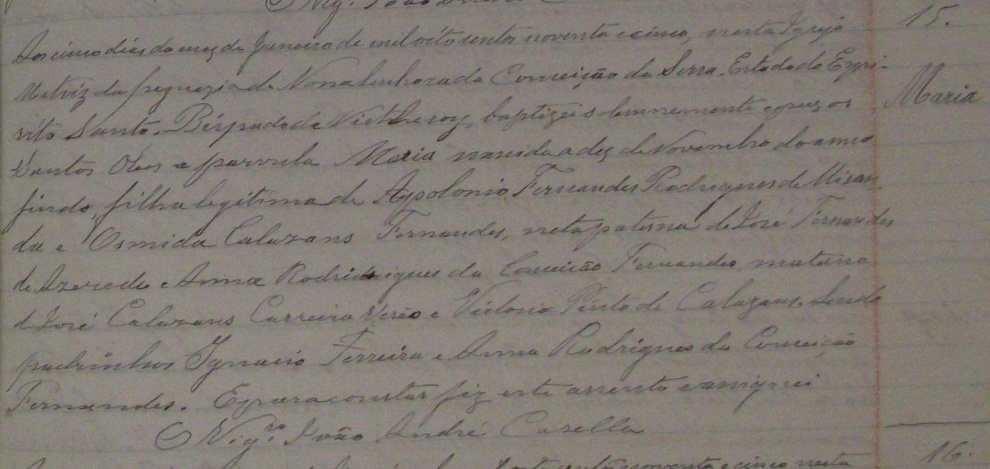 15.
Aos cinco dias do mez de Janeiro de mil oito centos noventa e cinco, nesta Igreja
Matriz da freguezia de Nossa Senhora da Conceição da Serra, Estado do Espi-
rito Santo, Bispado de Nictheroy, baptizei solemnemente e puz os
Santos Oleos a parvula Maria nascida a dez de Novembro do anno
Maria
findo, filha legitima de Appolonio Fernandes Rodrigues de Miran
da e Osmida Calazans Fernandes, neta paterna de José Fernandes
de Azeredo e Anna Rodrigues da Conceição Fernandes, materna
d José Calazans Carreira e Victoria Pinto de Calazans. Sendo
padrinhos Ignacio Ferreira e Anna Rodrigues da Conceição
Fernandes. E para constar fiz este assento e assignei
O Vigro João André Casella
16.
centos noventa e cinco nesta